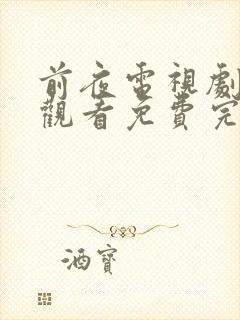 前夜電視劇
觀看免費完
酒寶